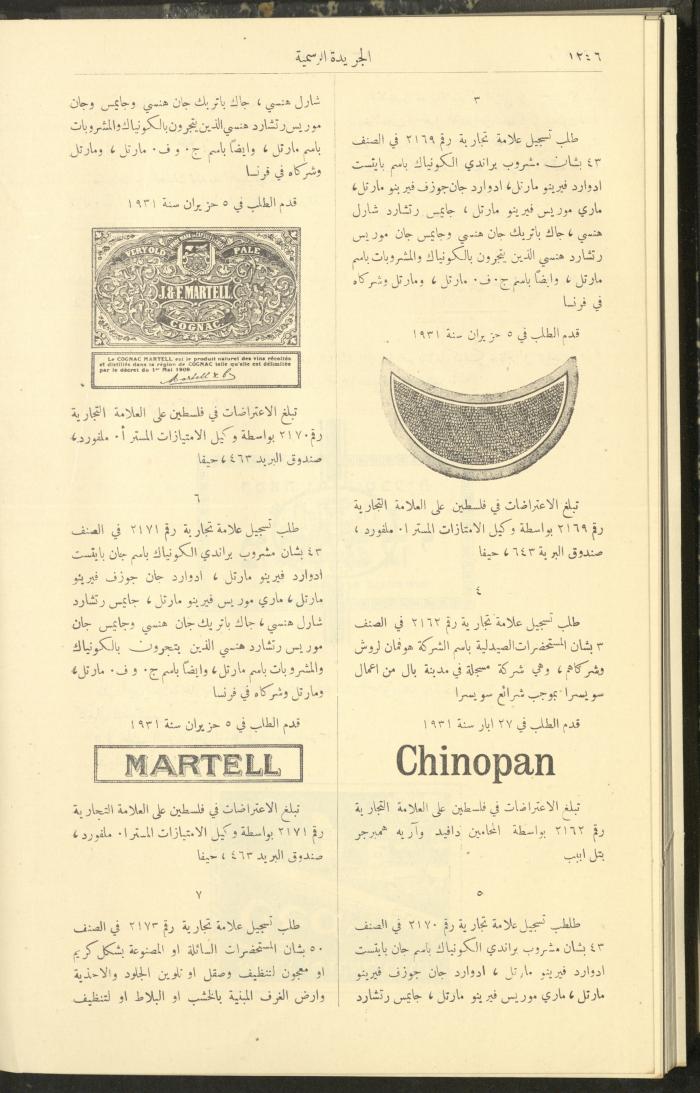 الجريدة الرسمية
١٢٤٦
٣
طلب تسجيل علامة تجارية رقم ٢١٦٩ في الصنف
٤٣ بشان مشروب براندي الكونياك باسم بابتست
ادوارد فيرينو مارتل، ادوارد جان جوزف فيرينو مارتل،
ماري موريس فيرينو مارتل ، جايمس رتشارد شارل
هنسي ، جاك باتريك جان هنسي وجايمس جان موريس
رتشارد هنسي الذين يتجرون بالكونياك والمشروبات باسم
مارتل ، وايضاً باسم ج٠ف٠ مارتل ، ومارتل وشركاه
في فرنسا
قدم الطلب في ٥ حزيران سنة ١٩٣١
تبلغ الاعتراضات في فلسطين على العلامة التجارية
رقم ٢١٦٩ بواسطة وكيل الامتيازات المستر ا٠ ملفورد ،
صندوق البرية ٦٤٣ ، حيفا
٤
طلب تسجيل علامة تجارية رقم ٢١٦٢ في الصنف
٣ بشان المستحضرات الصيدلية باسم الشركة هوفمان لروش
وشركاهم ، وهي شركة مسجلة في مدينة بال من اعمال
سويسرا بموجب شرائع سويسرا
قدم الطلب في ٢٧ ايار سنة ١٩٣١
Chinopan
تبلغ الاعتراضات في فلسطين على العلامة التجارية
رقم ٢١٦٢ بواسطة المحامين دافيد وآريه همبرجر
بتل ابيب
٥
طلطب تسجيل علامة تجارية رقم ٢١٧٠ في الصنف
٤٣ بشان مشروب براندي الكونياك باسم جان بابتست
ادوارد فيرينو مارتل ، ادوارد جان جوزف فيرينو
مارتل ، ماري موريس فيرينو مارتل ، جايمس رتشارد
شارل هنسي ، جاك باتريك جان هنسي وجايمس وجان
موريس رتشارد هنسي الذين يتجرون بالكونياك والمشروبات
باسم مارتل ، وايضاً باسم ج٠ و ف٠ مارتل ، ومارتل
وشركاه في فرنسا
قدم الطلب في ٥ حزيران سنة ١٩٣١
VERY OLD PALE
J.&F. MARTELL
COGNAC
Le COGNAC MARTELL est le produit naturel des vins récoltés
et distillés dans la région de COGNAC telle qu'elle est délimitée
par le décret du 1er Mai 1909
Martell & Co
تبلغ الاعتراضات في فلسطين على العلامة التجارية
رقم ٢١٧٠ بواسطة وكيل الامتيازات المستر أ٠ ملفورد،
صندوق البريد ٤٦٣ ، حيفا
٦
طلب تسجيل علامة تجارية رقم ٢١٧١ في الصنف
٤٣ بشان مشروب براندي الكونياك باسم جان بابتست
ادوارد فيرينو مارتل ، ادوارد جان جوزف فيرينو
مارتل ، ماري موريس فيرينو مارتل ، جايمس رتشارد
شارل هنسي ، جاك باتريك جان هنسي وجايمس جان
موريس رتشارد هنسي الذين يتجرون بالكونياك
والمشروبات باسم مارتل ، وايضاً باسم ج٠ و ف٠ مارتل ،
ومارتل وشركاه في فرنسا
قدم الطلب في ٥ حزيران سنة ١٩٣١
MARTELL
تبلغ الاعتراضات في فلسطين على العلامة التجارية
رقم ٢١٧١ بواسطة وكيل الامتيازات المستر ا٠ ملفورد ،
صندوق البريد ٤٦٣ ، حيفا
٧
طلب تسجيل علامة تجارية رقم ٢١٧٣ في الصنف
٥٠ بشان المستحضرات السائلة او المصنوعة بشكل كريم
او معجون لتنظيف وصقل او تلوين الجلود والاحذية
وارض الغرف المبنية بالخشب او البلاط او لتنظيف